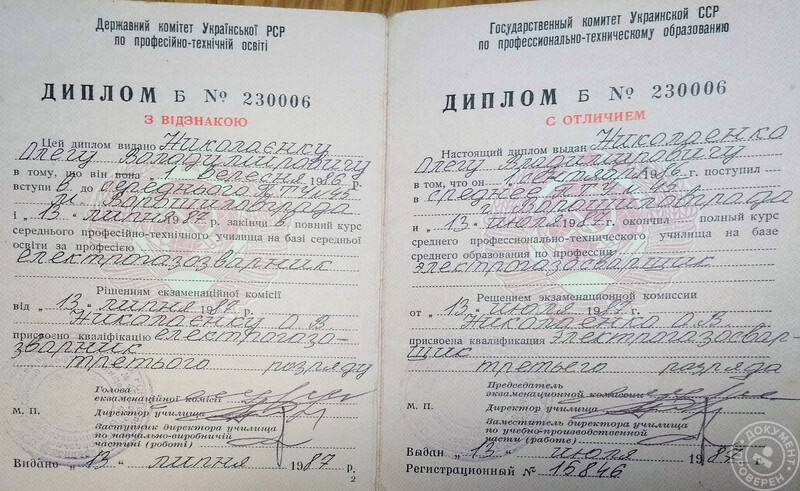 Державний комітет Української РСР
по професійно-технічній освіті
ДИПЛОМ Б № 230006
З ВІДЗНАКОЮ
Цей диплом видано Николаєнку
Олегу Володимировичу
в тому, що він вона 1 " вересня 1986 р.
вступив до середнього ПТУ № 45
м. Ворошиловграда
і „ 13 " липня 1987 р. закінчив повний курс
середнього професійно-технічного училища на базі середньої
освіти за професією
електрогазозварник
Рішенням екзаменаційної комісії
від „ 13 " липня 1987 р.
Николаєнку О.В.
присвоєно кваліфікацію електрогазо-
зварник
третього розряду
Голова
екзаменаційної комісії
М. П. Директор училища
Заступник директора училища
по навчально-виробничій
частині (роботі)
Видано „ 13 " липня 1987 р.
2
Государственный комитет Украинской ССР
по профессионально-техническому образованию
ДИПЛОМ Б № 230006
С ОТЛИЧИЕМ
Настоящий диплом выдан Николаенко
Олегу Владимировичу
в том, что он „ 1 сентября 1986 г. поступил
в среднее ПТУ № 45
г. Ворошиловграда
и „ 13 " июля 1987 г. окончил полный курс
среднего профессионально-технического училища на базе
среднего образования по профессии
электрогазосварщик
Решением экзаменационной комиссии
от „ 13 " июля 1987 г.
Николаенко О.В.
присвоена квалификация электрогазосвар-
щик
третьего разряда
Председатель
экзаменационной комиссии
М. П. Директор училища
Заместитель директора училища
по учебно-производственной
части (работе)
Выдан „ 13 " июля 1987 г.
Регистрационный № 15846
ДОКУМЕНТ
ПРОВЕРЕН